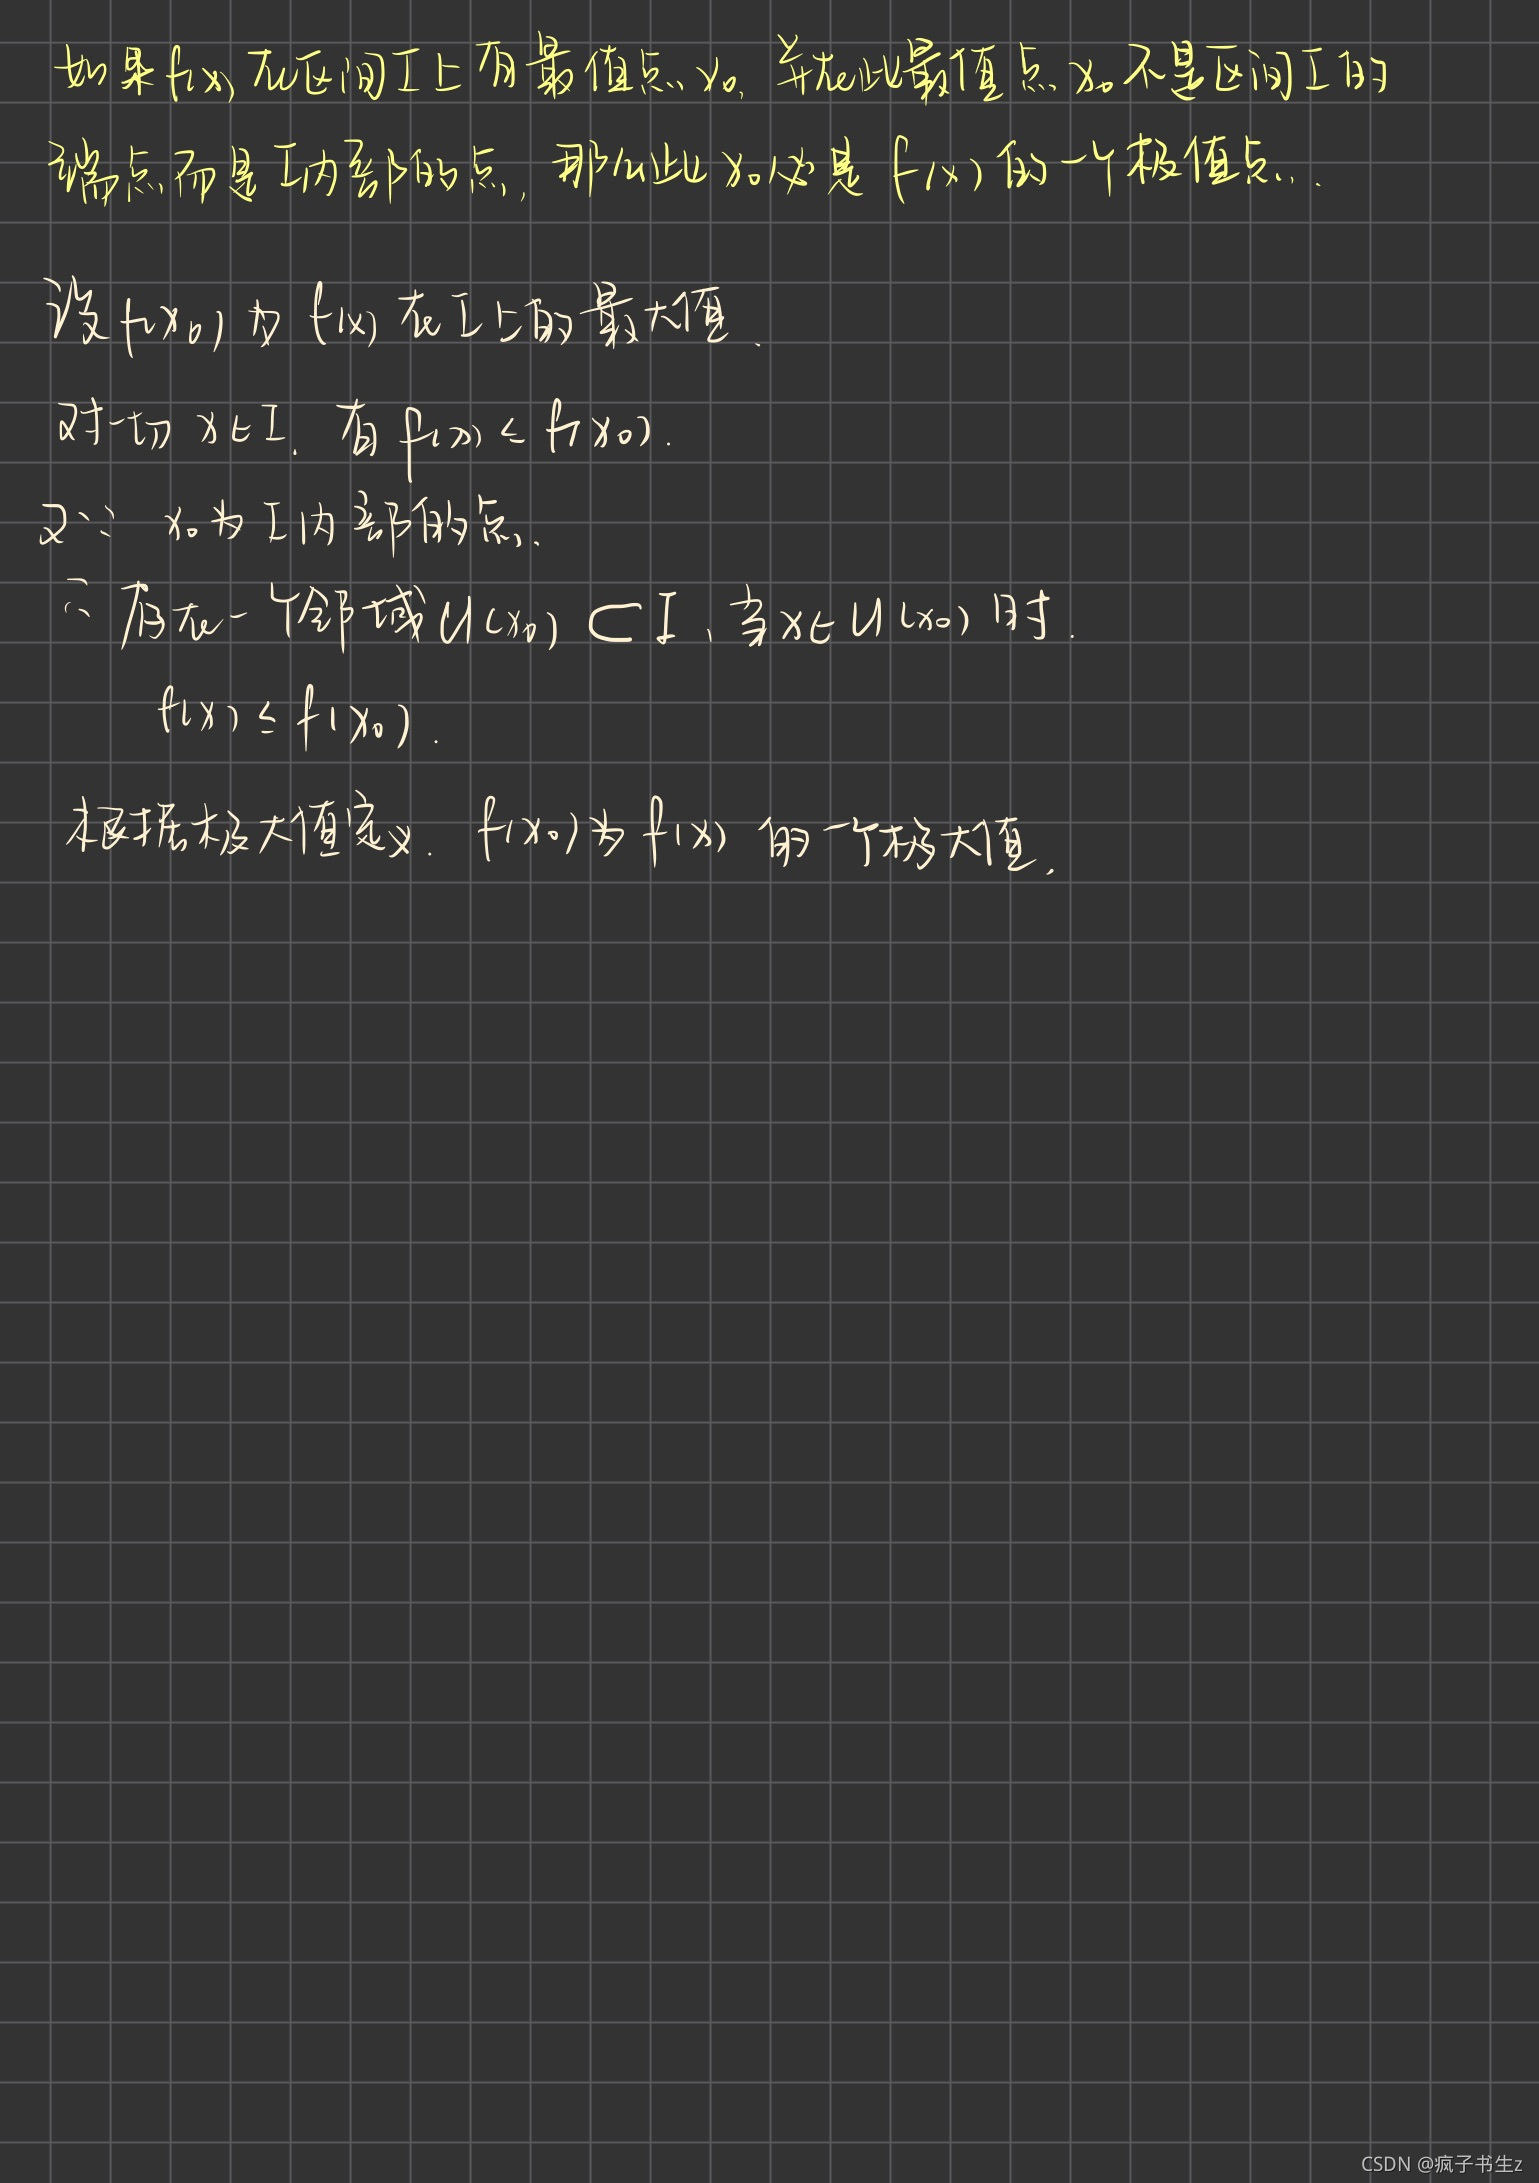 如果f(x)在区间I上有最值点x₀,并在此最值点x₀不是区间I的
端点而是I内部的点,那么此x₀必是f(x)的一个极值点.
设f(x₀)为f(x)在I上的最大值.
对一切x∈I.有f(x)≤f(x₀).
又∵ x₀为I内部的点.
∴存在一个邻域U(x₀)⊂I、当x∈U(x₀)时.
f(x)≤f(x₀).
根据极大值定义.f(x₀)为f(x)的一个极大值.
CSDN @疯子书生z